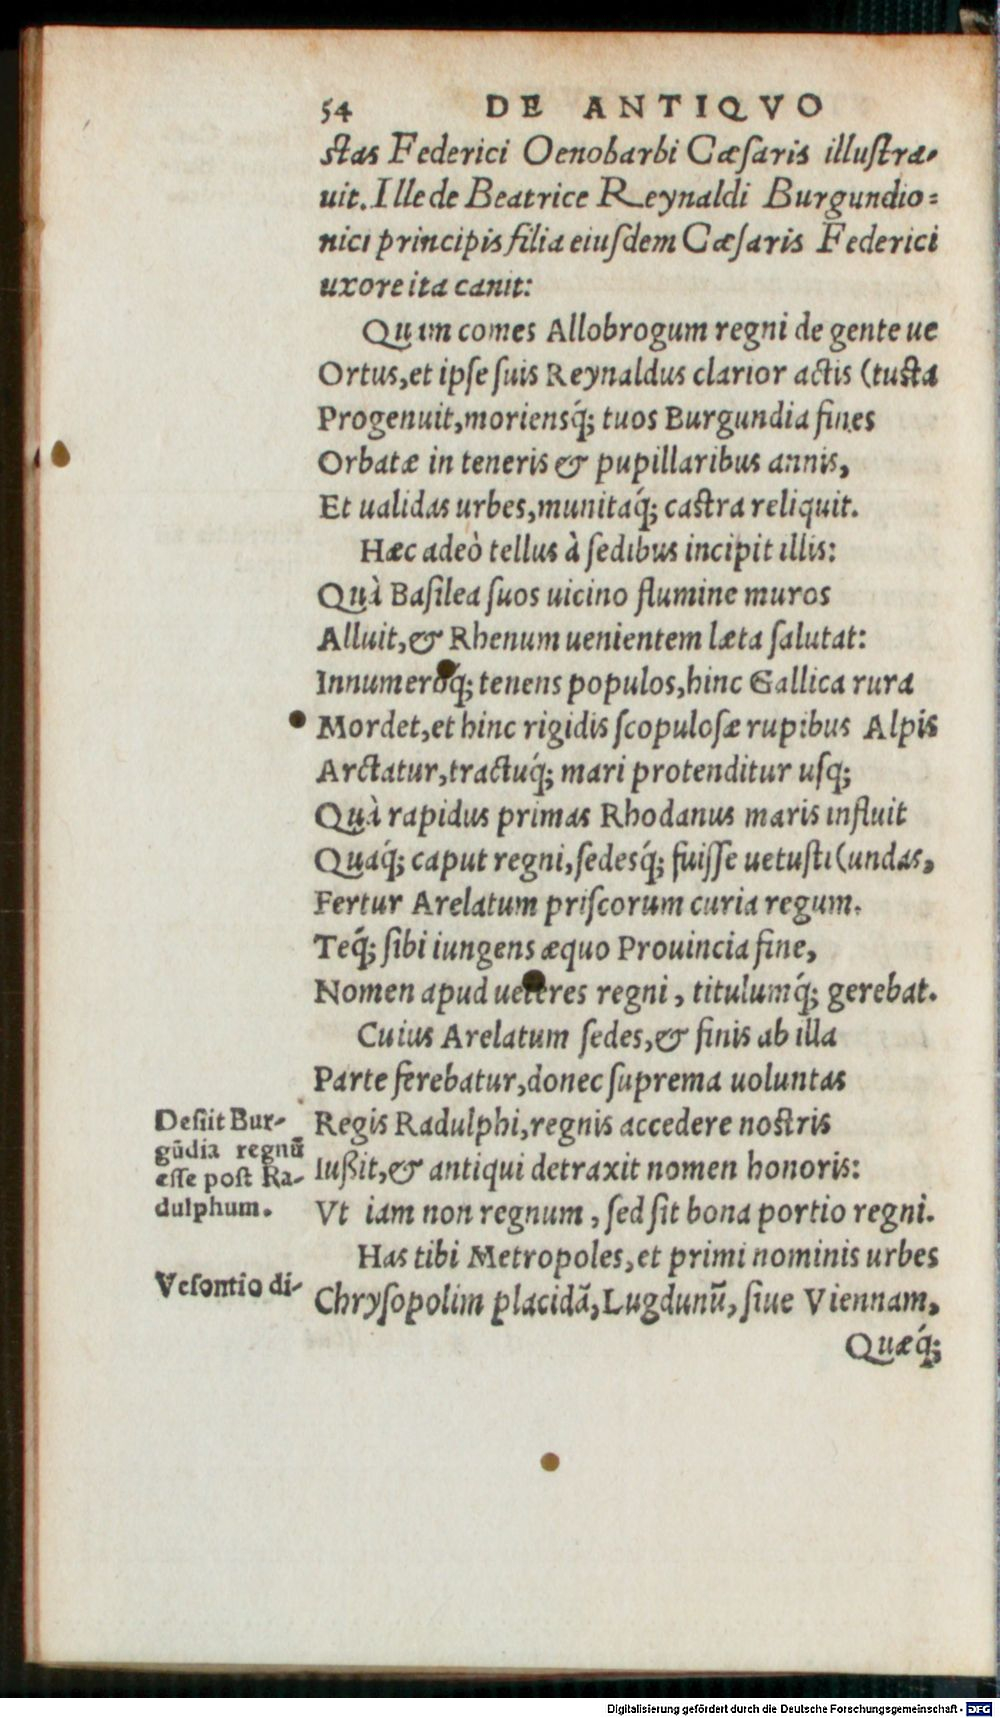 54 DE ANTIQVO
stas Federici Oenobarbi Cæsaris illustra-
uit. Ille de Beatrice Reynaldi Burgundio=
nici principis filia eiusdem Cæsaris Federici
uxore ita canit:
Quam comes Allobrogum regni de gente ue
Ortus, et ipse suis Reynaldus clarior actis (tusta
Progenuit, moriensq́; tuos Burgundia fines
Orbatæ in teneris & pupillaribus annis,
Et ualidas urbes, munitaq́; castra reliquit.
Hæc adeò tellus à sedibus incipit illis:
Quà Basilea suos uicino flumine muros
Alluit, & Rhenum uenientem læta salutat:
Innumerosq́; tenens populos, hinc Gallica rura
Mordet, et hinc rigidis scopulosæ rupibus Alpis
Arctatur, tractuq́; mari protenditur usq;
Quà rapidus primas Rhodanus maris influit
Quaq́; caput regni, sedesq́; fuisse uetusti (undas,
Fertur Arelatum priscorum curia regum.
Teq́; sibi iungens æquo Prouincia fine,
Nomen apud ueteres regni, titulumq́; gerebat.
Cuius Arelatum sedes, & finis ab illa
Parte ferebatur, donec suprema uoluntas
Desiit Bur-
gūdia regnū
esse post Ra-
dulphum.
Regis Radulphi, regnis accedere nostris
Iußit, & antiqui detraxit nomen honoris:
Vt iam non regnum, sed sit bona portio regni.
Has tibi Metropoles, et primi nominis urbes
Vesontio di-
Chrysopolim placidā, Lugdunū, siue Viennam,
Quæq́;
Digitalisierung gefördert durch die Deutsche Forschungsgemeinschaft - DFG